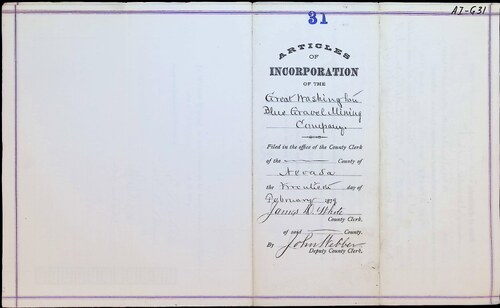 31
AI-631
ARTICLES
OF
INCORPORATION
OF THE
Great Washington
Blue Gravel Mining
Company.
Filed in the office of the County Clerk
of the County of
Nevada
the Twentieth day of
February 1879
James D. White
County Clerk.
of said County.
By John Webber
Deputy County Clerk.